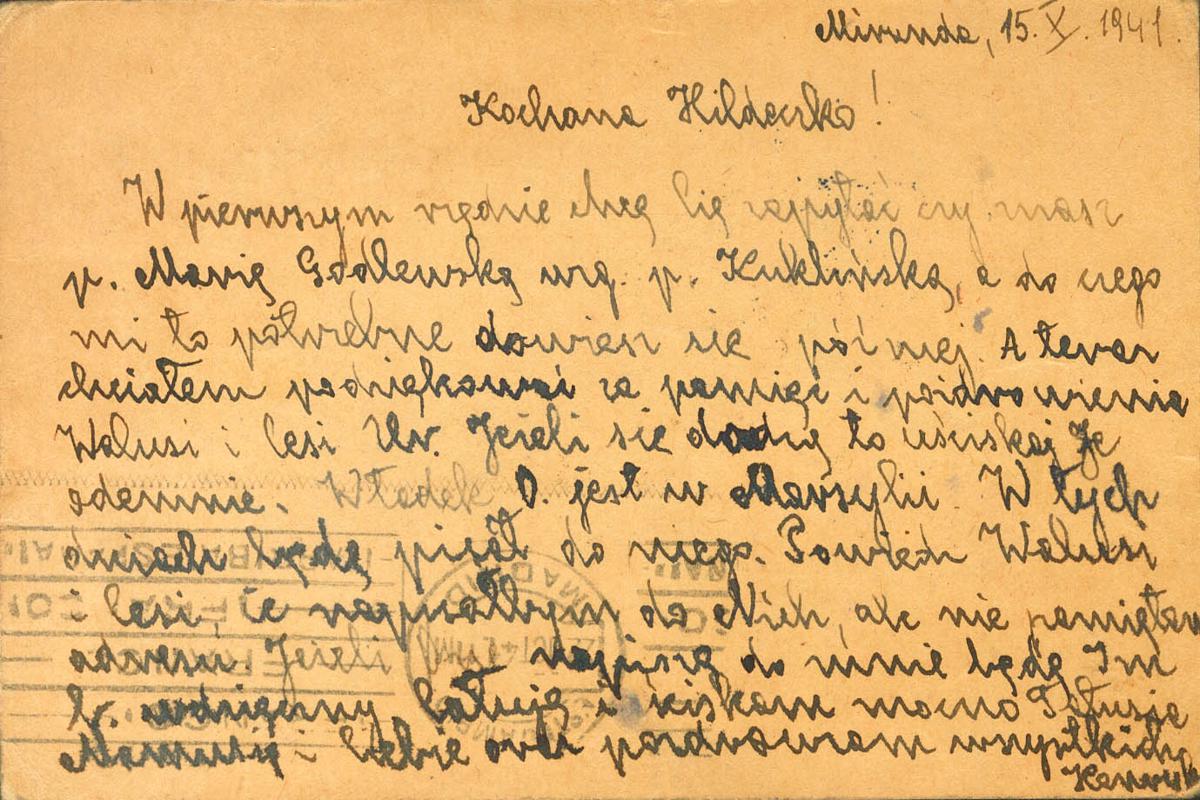 Miranda, 15. X. 1941.
Kochana Hildeczko!
W pierwszym rzędzie chcę Cię zapytać czy znasz
p. Marię Godlewską wzg. p. Kuklińską, a do czego
mi to potrzebne dowiesz się później. A teraz
chciałem podziękować za pamięć i pozdrowienia
Walusi i Cesi Ur. Jeżeli się dadzą to uściskaj Je
odemnie. Władek O. jest w Marsylii. W tych
dniach będę pisał do niego. Powiedz Walusi
i Cesi, że napisałbym do Nich, ale nie pamiętam
adresu. Jeżeli napiszą do mnie będę Im
b. wdzięczny Całuję i ściskam mocno Tatusia
Mamusię i Ciebie oraz pozdrawiam wszystkich,